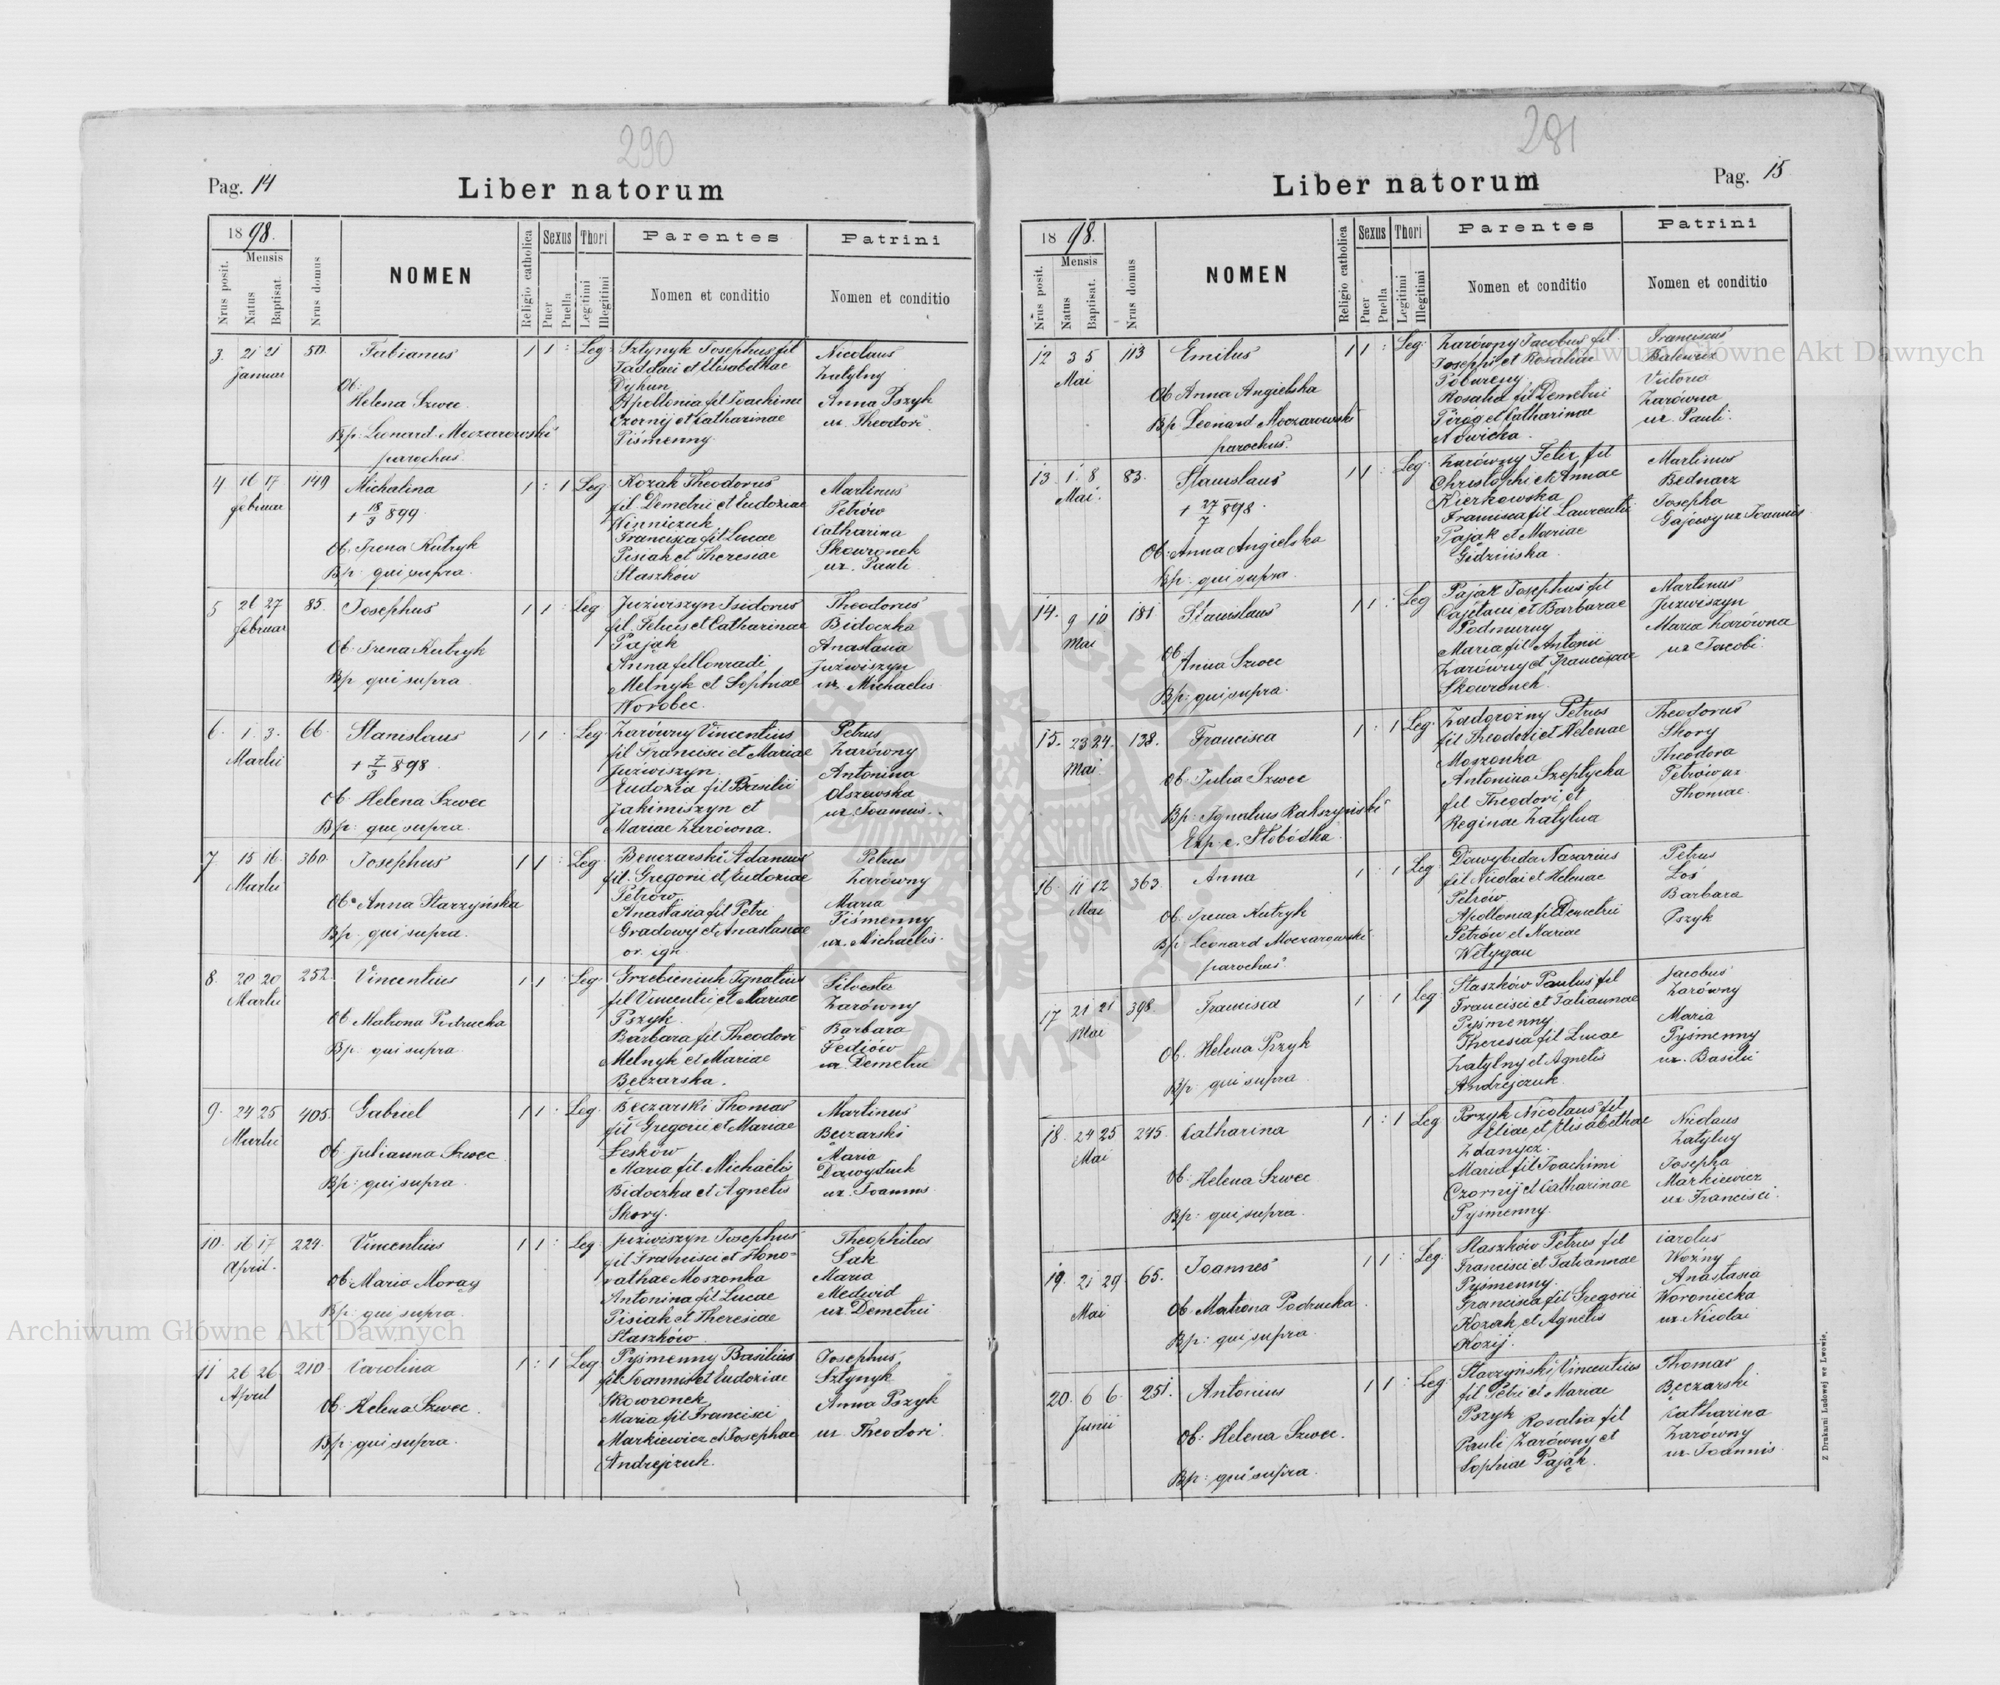 290
Pag. 14
Liber natorum
1898.
Mensis
Nrus posit.
Natus
Baptisat.
Nrus domus
NOMEN
Religio catholica
Sexus
Puer
Puella
Thori
Legitimi
Illegitimi
Parentes
Nomen et conditio
Patrini
Nomen et conditio
3. 21 21 50. Fabianus 1 1 : Leg. Sztynyk Josephus fil Nicolaus
Januar Taddaei et Elisabethae Zatylny
Ob: Dyhun Anna Pszyk
Helena Szwec. Apollonia fil Joachimi ux. Theodori.
Bp: Leonard Moczarowski Czornij et Catharinae
parochus. Piśmenny.
4. 16 17 149 Michalina 1 : 1 Leg. Kozak Theodorus Martinus
Februar + 18/3 899. fil. Demetrii et Eudoxiae Petrów
Winniczuk Catharina
Ob. Irena Kutryk Francisca fil Lucae Skowronek
Bp: qui supra. Pisiak et Theresiae ux. Pauli
Staszków
5 26 27 85. Josephus 1 1 : Leg Juźwiszyn Isidorus Theodorus
Februar fil. Felicis et Catharinae Bidoczka
Ob: Irena Kutryk Pająk Anastasia
Anna fil Conradi Juźwiszyn
Bp: qui supra. Melnyk et Sophiae ux. Michaelis
Worobec.
6. 1. 3. 66. Stanislaus 1 1 : Leg. Zarówny Vincentius Petrus
Martii + 7/3 898. fil Francisci et Mariae Zarówny
Juźwiszyn. Antonina
Ob: Helena Szwec Eudoxia fil Basilii Olszewska
Bp: qui supra. Jakimiszyn et ux. Joannis.
Mariae Zarówna.
7. 15 16. 360. Josephus 1 1 : Leg. Benczarski Adamus Petrus
Martii fil. Gregorii et Eudoxiae Zarówny
Ob. Anna Starzyńska Petrów Maria
Anastasia fil Petri Piśmenny
Bp. qui supra. Gradowy et Anastasiae ux. Michaelis.
or. ign.
8. 20 20 252. Vincentius 1 1 : Leg. Grzebieniuk Ignatius Silvester
Martii fil Vincentii et Mariae Zarówny
Ob Matrona Podrucka Pszyk. Barbara
Bp: qui supra Barbara fil Theodori Fediów
Melnyk et Mariae ux. Demetrii
Beczarska.
9. 24 25 405. Gabriel 1 1 : Leg. Bęczarski Thomas Martinus
Martii fil Gregorii et Mariae Beczarski
Ob Julianna Szwec Leśków Maria
Bp: qui supra. Maria fil. Michaelis
Bidoczka et Agnetis ux. Joannis
Skory.
10. 16 17 224. Vincentius 1 1 : Leg. Juźwiszyn Josephus Theophilus
April. fil Francisci et Hono- Sak
rathae Moszonka Maria
Ob: Maria Antonina fil Lucae Medwid
Bp: qui supra. Pisiak et Theresiae ux. Demetrii
Staszków
11 26 26 210. Carolina 1 : 1 Leg. Pyśmenny Basilius Josephus
April fil Joannis et Eudoxiae Sztynyk
Ob: Helena Szwec. Skowronek Anna Pszyk
Bp: qui supra. Maria fil Francisci ux. Theodori.
Markiewicz et Josephae
Andrejczuk.
281
Liber natorum
Pag. 15
1898.
Mensis
Nrus posit.
Natus
Baptisat.
Nrus domus
NOMEN
Religio catholica
Sexus
Puer
Puella
Thori
Legitimi
Illegitimi
Parentes
Nomen et conditio
Patrini
Nomen et conditio
12 3 5 113 Emilus 1 1 : Leg. Zarówny Jacobus fil. Franciscus
Mai Josephi et Rosaliae
Ob Anna Angielska Pobureny Victoria
Rosalia fil Demetrii Zarówna
Bp. Leonard Moczarowski Piróg et Catharinae ux. Pauli.
parochus. Nowicka.
13 1. 8 83. Stanislaus 1 1 : Leg. Zarówny Petir fil Martinus
Mai. + 27/7 898. Christophi et Annae Bednarz
Kierkowska Josepha
Ob: Anna Angielska Francisca fil Laurentii Gajowy ux Joannis
Bp: qui supra. Pająk et Mariae
Gidzińska.
14. 9 10 181 Stanislaus 1 1 : Leg Pająk Josephus fil Martinus
Mai Cajetani et Barbarae Juzwiszyn
Ob Podmurny Maria Zarówna
Anna Szwec Maria fil Antonii ux Jacobi.
Bp: qui supra. Zarówny et Franciscae
Skowronek.
15. 23 24. 138. Francisca 1 : 1 Leg. Zadorożny Petrus Theodorus
Mai fil Theodori et Helenae Skory
Ob. Julia Szwec Moszonka Theodora
Antonina Szeptycka Petrów ux
Bp: Ignatius Rakszyński fil Theodori et Thomae.
Exp. e. Słobódka Reginae Zatylna
16. 11 12 363. Anna 1 : 1 Leg Dawybida Nazarius Petrus
Mai fil Nicolai et Helenae Łoś
Ob. Irena Kutryk Petrów Barbara
Bp. Leonard Moczarowski Apollonia fil Demetrii Pszyk
parochus. Petrów et Mariae
Wetygan
17 21 21 398. Francisca 1 : 1 Leg. Staszków Paulus fil Jacobus
Mai Francisci et Tatiannae Zarówny
Ob. Helena Pszyk Pyśmenny Maria
Theresia fil Lucae Pyśmenny
Bp: qui supra Zatylny et Agnetis ux. Basilii
Andrejczuk.
18. 24 25 245. Catharina 1 : 1 Leg Pszyk Nicolaus fil Nicolaus
Mai Eliae et Elisabethae Zatylny
Ob: Helena Szwec Zdanycz. Josepha
Maria fil Joachimi Markiewicz
Bp: qui supra. Czornij et Catharinae ux Francisci.
Pyśmenny.
19. 21 29 65. Joannes 1 1 : Leg. Staszków Petrus fil Carolus
Mai Francisci et Tatiannae Woźny
Ob. Matrona Podrucka Pyśmenny. Anastasia
Francisca fil Gregorii Woroniecka
Bp: qui supra. Kozak et Agnetis ux Nicolai
Kozij.
20. 6 6. 251. Antonius 1 1 : Leg. Starzyński Vincentius Thomas
Junii fil Petri et Mariae Bęczarski
Ob: Helena Szwec. Pszyk Rosalia fil Catharina
Pauli Zarówny et Zarówny
Bp: qui supra. Sophiae Pająk. ux. Joannis
Z Drukarni Ludowej we Lwowie.
Archiwum Główne Akt Dawnych
Archiwum Główne Akt Dawnych